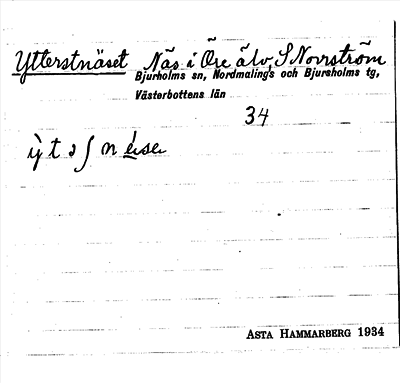 Ytterstnäset Näs i Öre älv, S Norrström
Bjurholms sn, Nordmalings och Bjurholms tg,
Västerbottens län
34
ASTA HAMMARBERG 1934